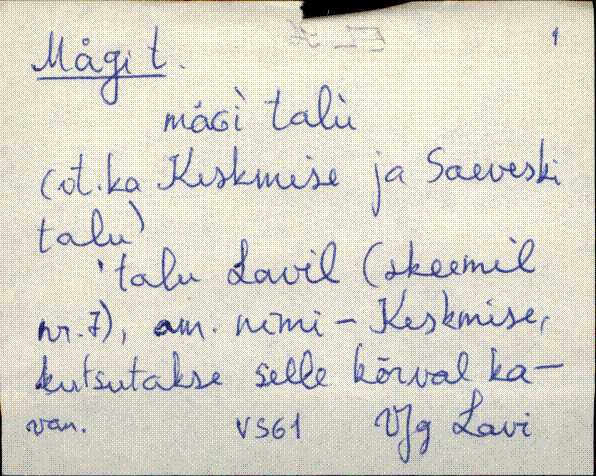 1
Mägi t.
mäɢì talù
(vt. ka Keskmise ja Saeveski
talu)
talu Lavil (skeemil
nr. 7), am. nimi – Keskmise,
kutsutakse selle kõrval ka –
van. VS61 Vjg Lavi